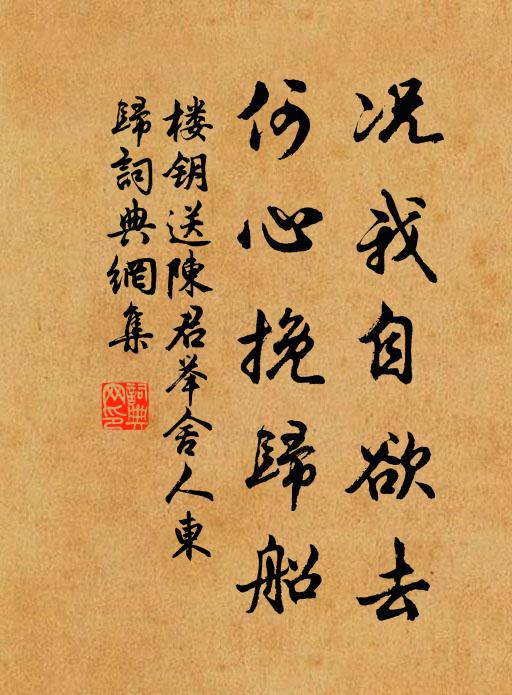 况我自欲去
何心挽歸船
楼钥送陳君举舍人東
歸詞典網集
詞典网印